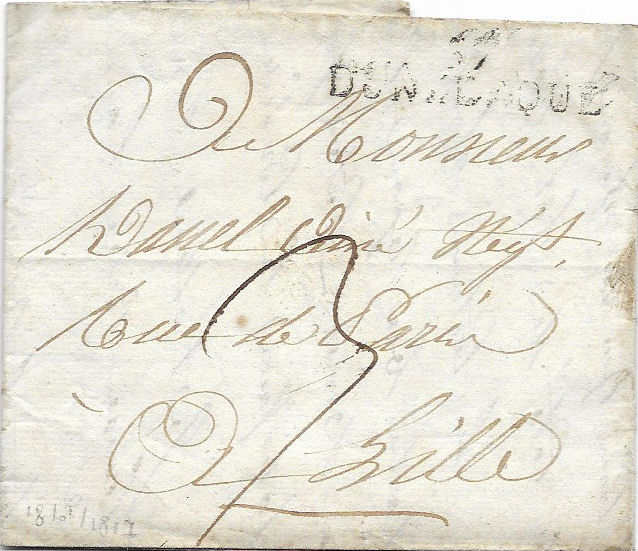 57
DUNKERQUE
A Monsieur
Danel Ainé Négt.
Rue de Paris
A Lille
3
18/1/1817